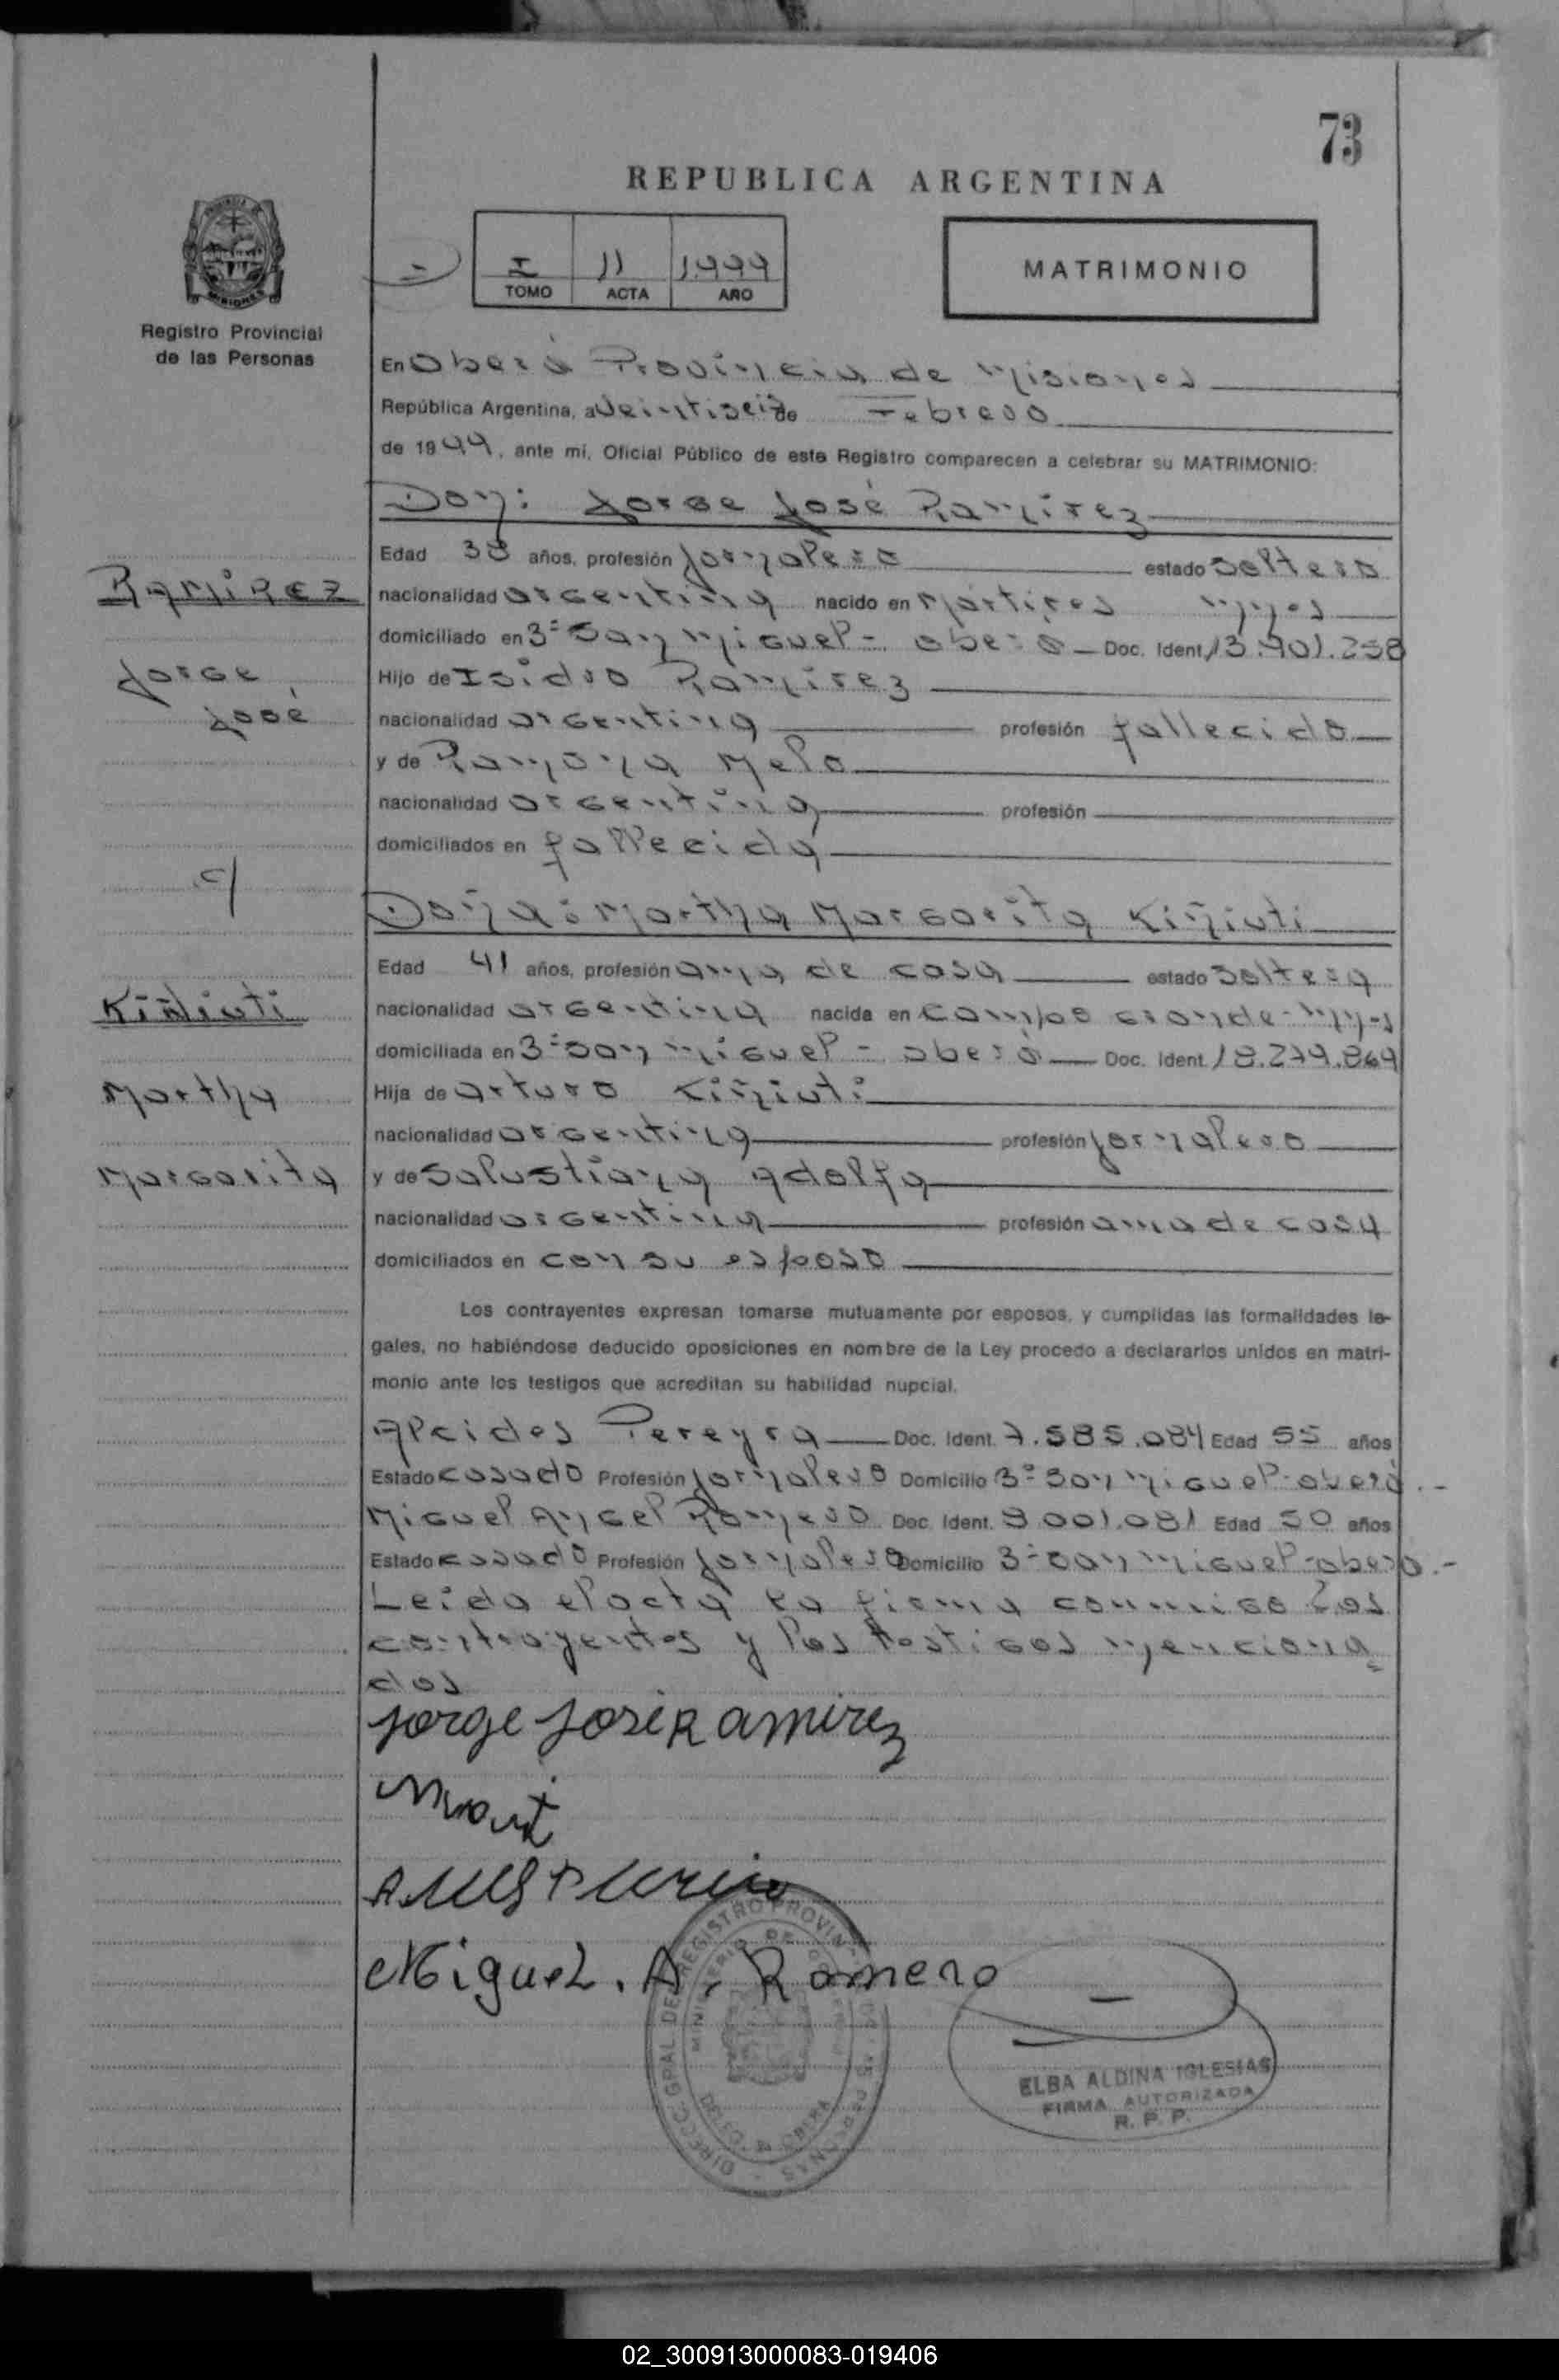 73
REPUBLICA ARGENTINA
I 11 1999
TOMO ACTA AÑO
MATRIMONIO
PROVINCIA DE MISIONES
Registro Provincial
de las Personas
En Oberá Provincia de Misiones
República Argentina, a Veintiseis de Febrero
de 1999, ante mí, Oficial Público de este Registro comparecen a celebrar su MATRIMONIO:
Don: Jorge José Ramirez
Edad 38 años, profesión Jornalero estado soltero
Ramirez
nacionalidad argentina nacido en Mártires Mnes
domiciliado en 3º San Miguel - Oberá Doc. Ident. 13.901.258
Jorge
José
Hijo de Isidro Ramirez
nacionalidad argentina profesión fallecido
y de Ramona Melo
nacionalidad argentina profesión
domiciliados en fallecida
c/
Doña: Martha Margarita Kiñiuti
Edad 41 años, profesión ama de casa estado soltera
Kiñiuti
nacionalidad argentina nacida en Campo Grande-Mnes
domiciliada en 3º San Miguel - Oberá Doc. Ident. 18.279.864
Martha
Hija de Arturo Kiñiuti
nacionalidad argentina profesión Jornalero
Margarita
y de Salustiana Adolfa
nacionalidad argentina profesión ama de casa
domiciliados en con su esposo
Los contrayentes expresan tomarse mutuamente por esposos, y cumplidas las formalidades le-
gales, no habiéndose deducido oposiciones en nombre de la Ley procedo a declararlos unidos en matri-
monio ante los testigos que acreditan su habilidad nupcial.
Alcides Pereyra Doc. Ident. 7.585.084 Edad 55 años
Estado casado Profesión Jornalero Domicilio 3º San Miguel-Oberá.-
Miguel Angel Romero Doc. Ident. 8.001.081 Edad 50 años
Estado casado Profesión Jornalero Domicilio 3º San Miguel-Oberá.-
Leida el acta la firma conmigo los
contrayentes y los testigos menciona
dos
Jorge José Ramirez
Miguel. A. Romero
DIRECC. GRAL DEL REGISTRO PROVINCIAL DE LAS PERSONAS
MINISTERIO DE GOBIERNO
ELBA ALDINA IGLESIAS
FIRMA AUTORIZADA
R. P. P.
02_300913000083-019406